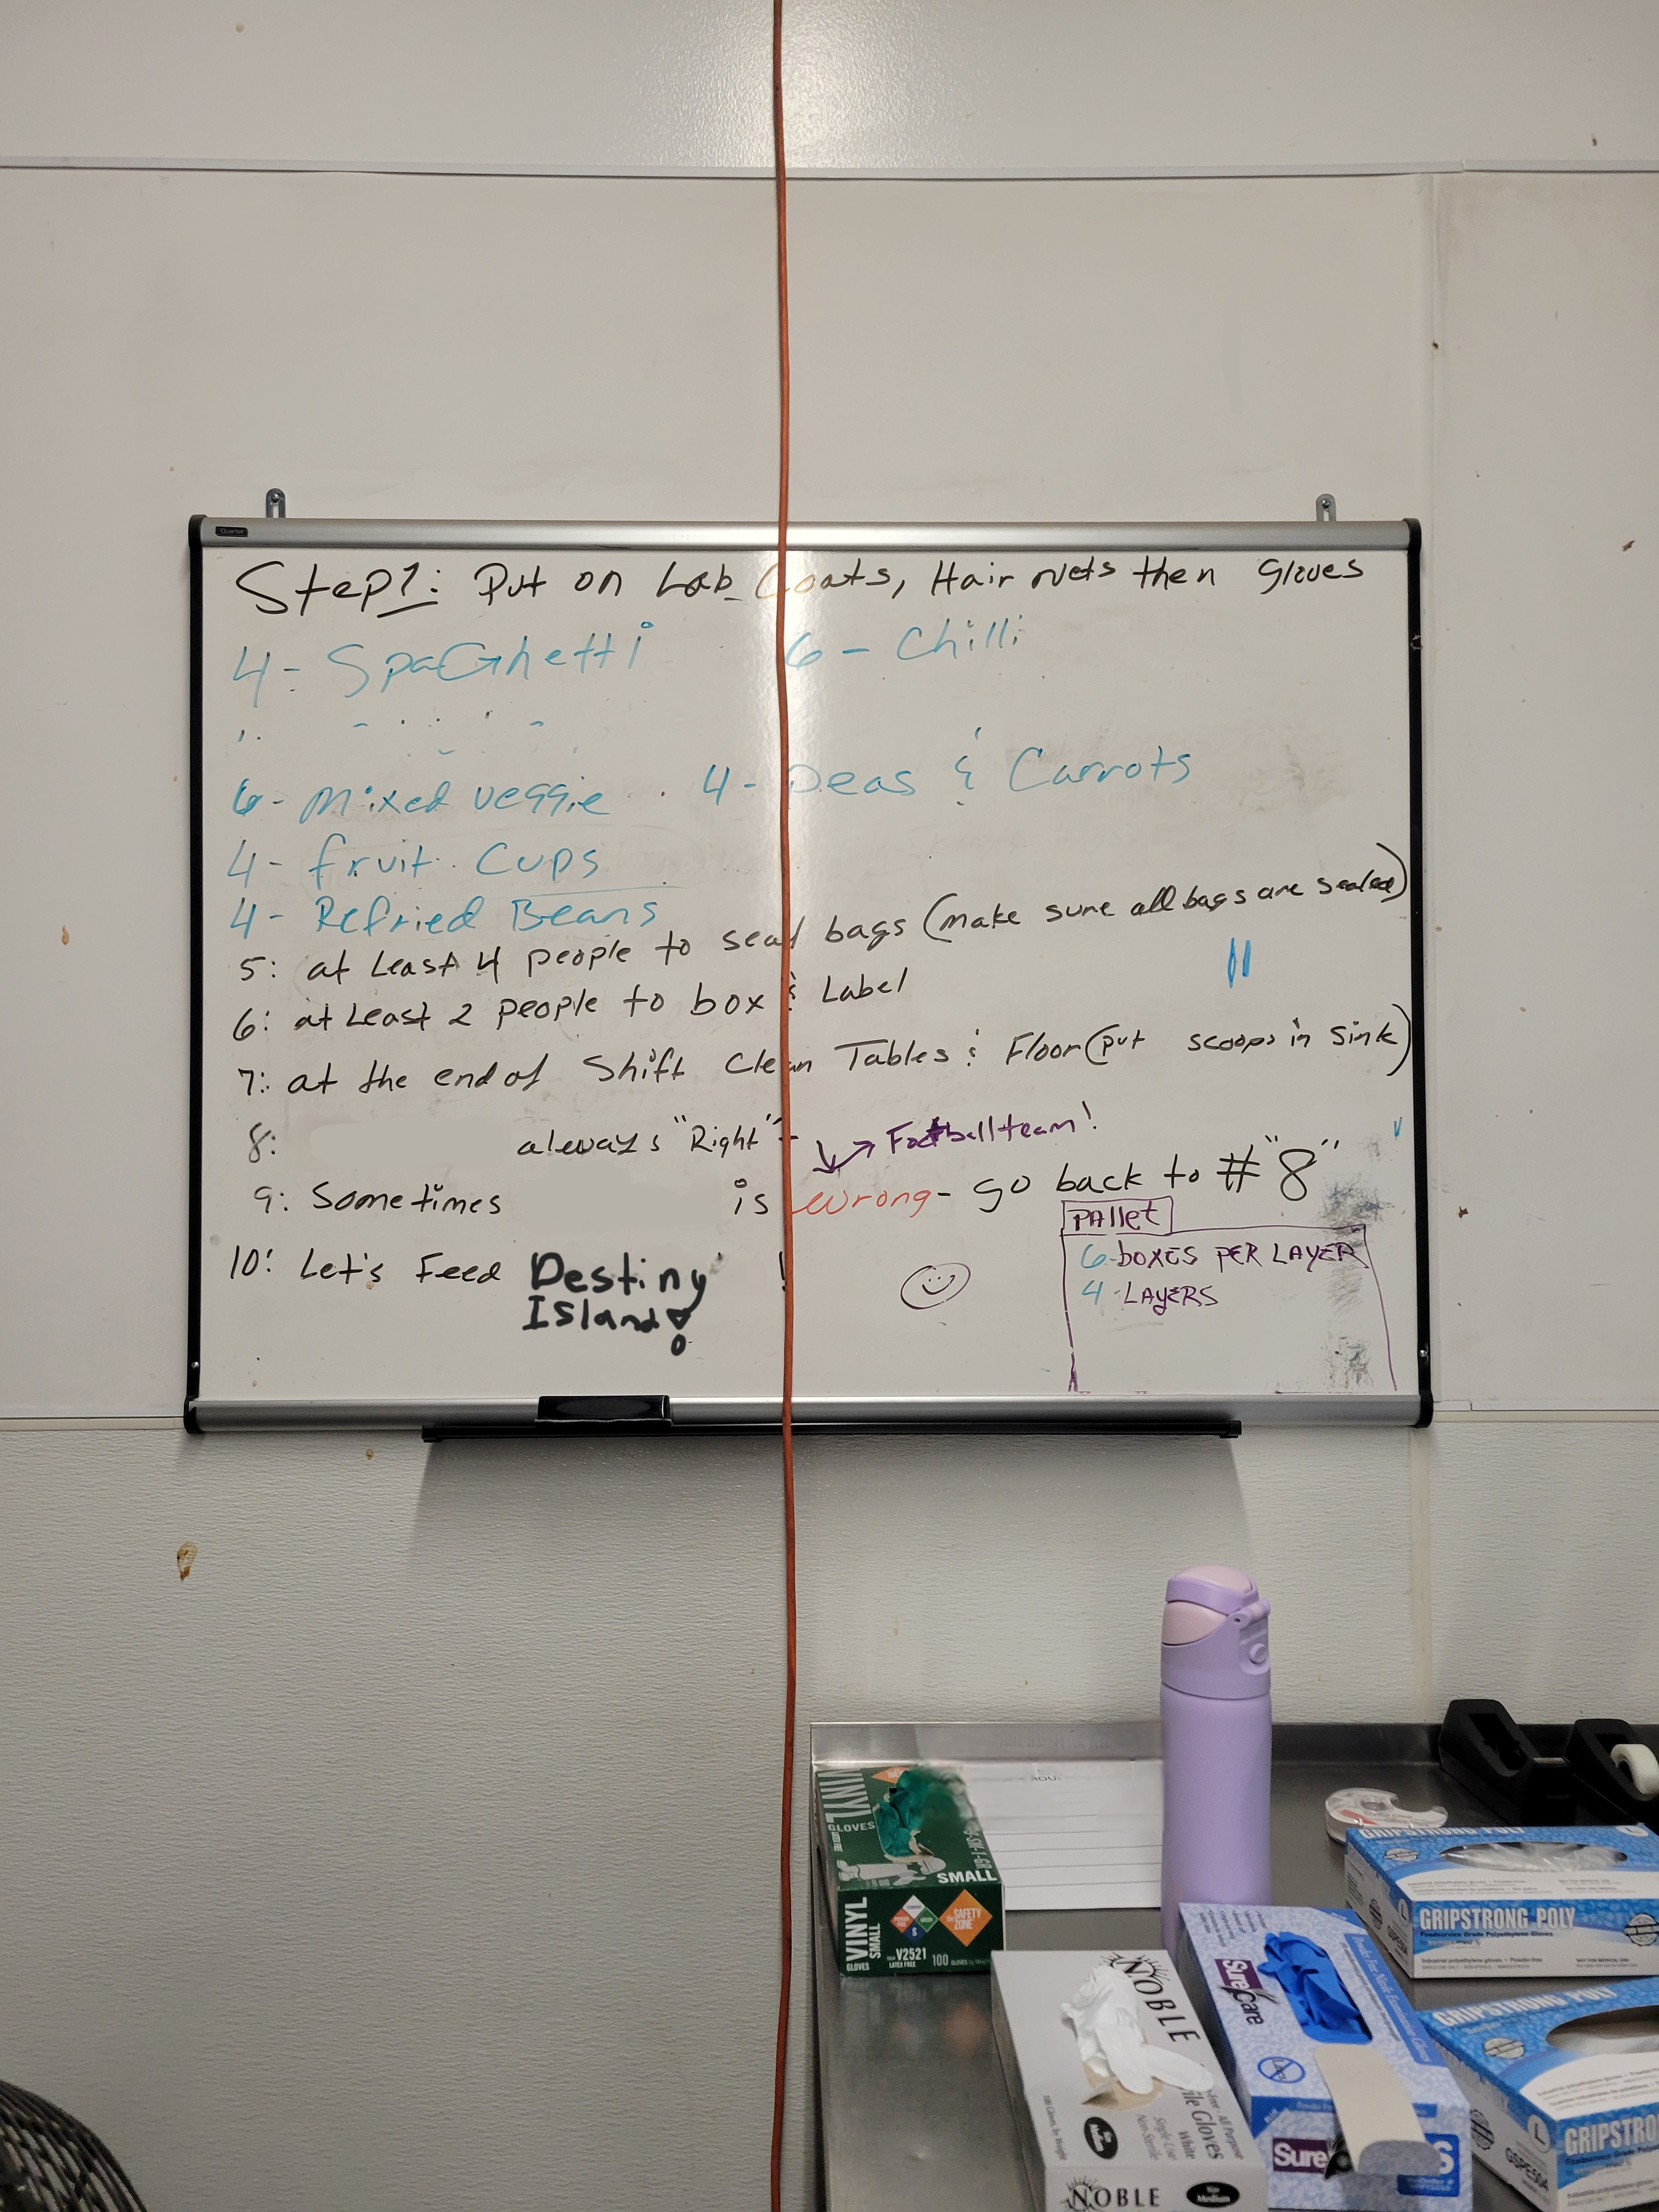 Quartet
Step 1: Put on Lab Coats, Hair nets then gloves
4- SpaGhetti 6- Chilli
6- Mixed veggie 4- Peas & Carrots
4- fruit Cups
4- Refried Beans
5: at Least 4 people to seal bags (make sure all bags are sealed)
6: at Least 2 people to box & Label
7: at the end of Shift Clean Tables & Floor (put scoops in sink)
8: always "Right" - Football team!
9: Sometimes is wrong - go back to #"8"
10: Let's Feed Destiny !
Island!
PAllet
6-boxes PER LAYER
4-LAYERS
VINYL
GLOVES
SMALL
VINYL
SMALL
GLOVES
SAFETY
ZONE
V2521
LATEX FREE
100 GLOVES
NOBLE
Gloves
White
Non-Sterile
NOBLE
Medium
SureCare
Sure
GRIPSTRONG POLY
L
GRIPSTRONG POLY
Foodservice Grade Polyethylene Gloves
Industrial polyethylene gloves • Powder-free
GRIPSTRONG POLY
L
GRIPSTRO